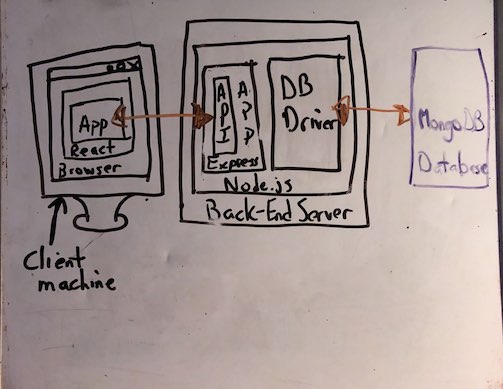 App
React
Browser
Client
machine
API
APP
Express
DB
Driver
Node.js
Back-End Server
MongoDB
Database